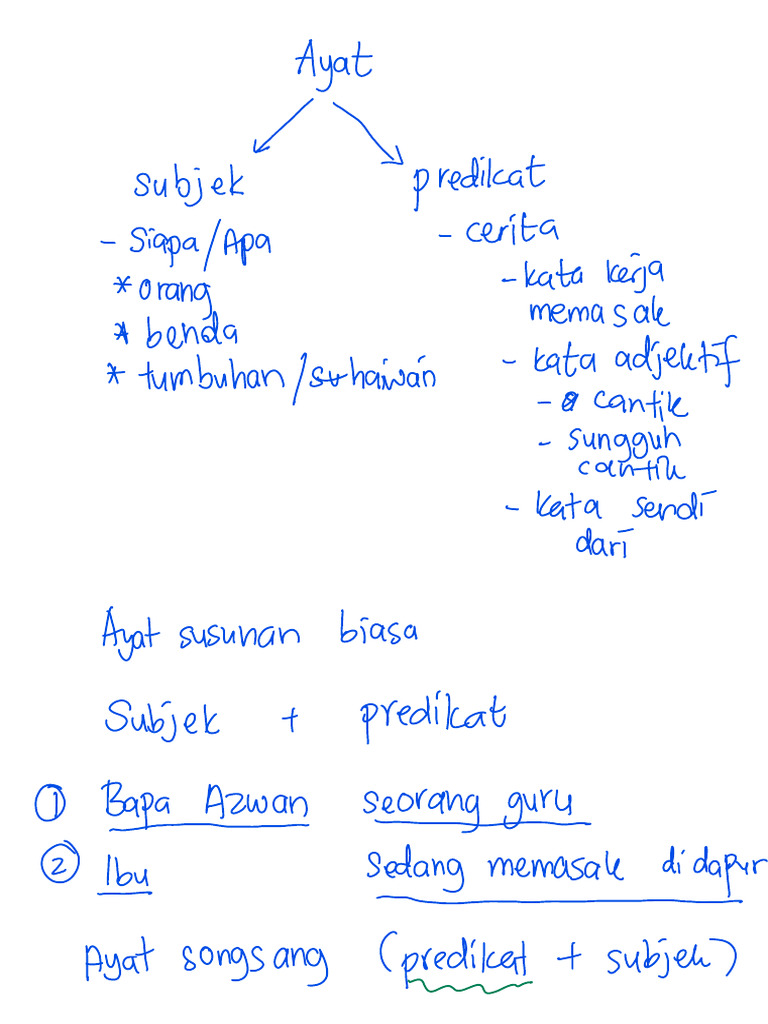 Ayat
subjek
- Siapa/Apa
* orang
* benda
* tumbuhan/haiwan
predikat
- cerita
- kata kerja
memasak
- kata adjektif
- cantik
- sungguh
cantik
- kata sendi
dari
Ayat susunan biasa
Subjek + predikat
① Bapa Azwan seorang guru
② Ibu sedang memasak didapur
Ayat songsang (predikat + subjek)